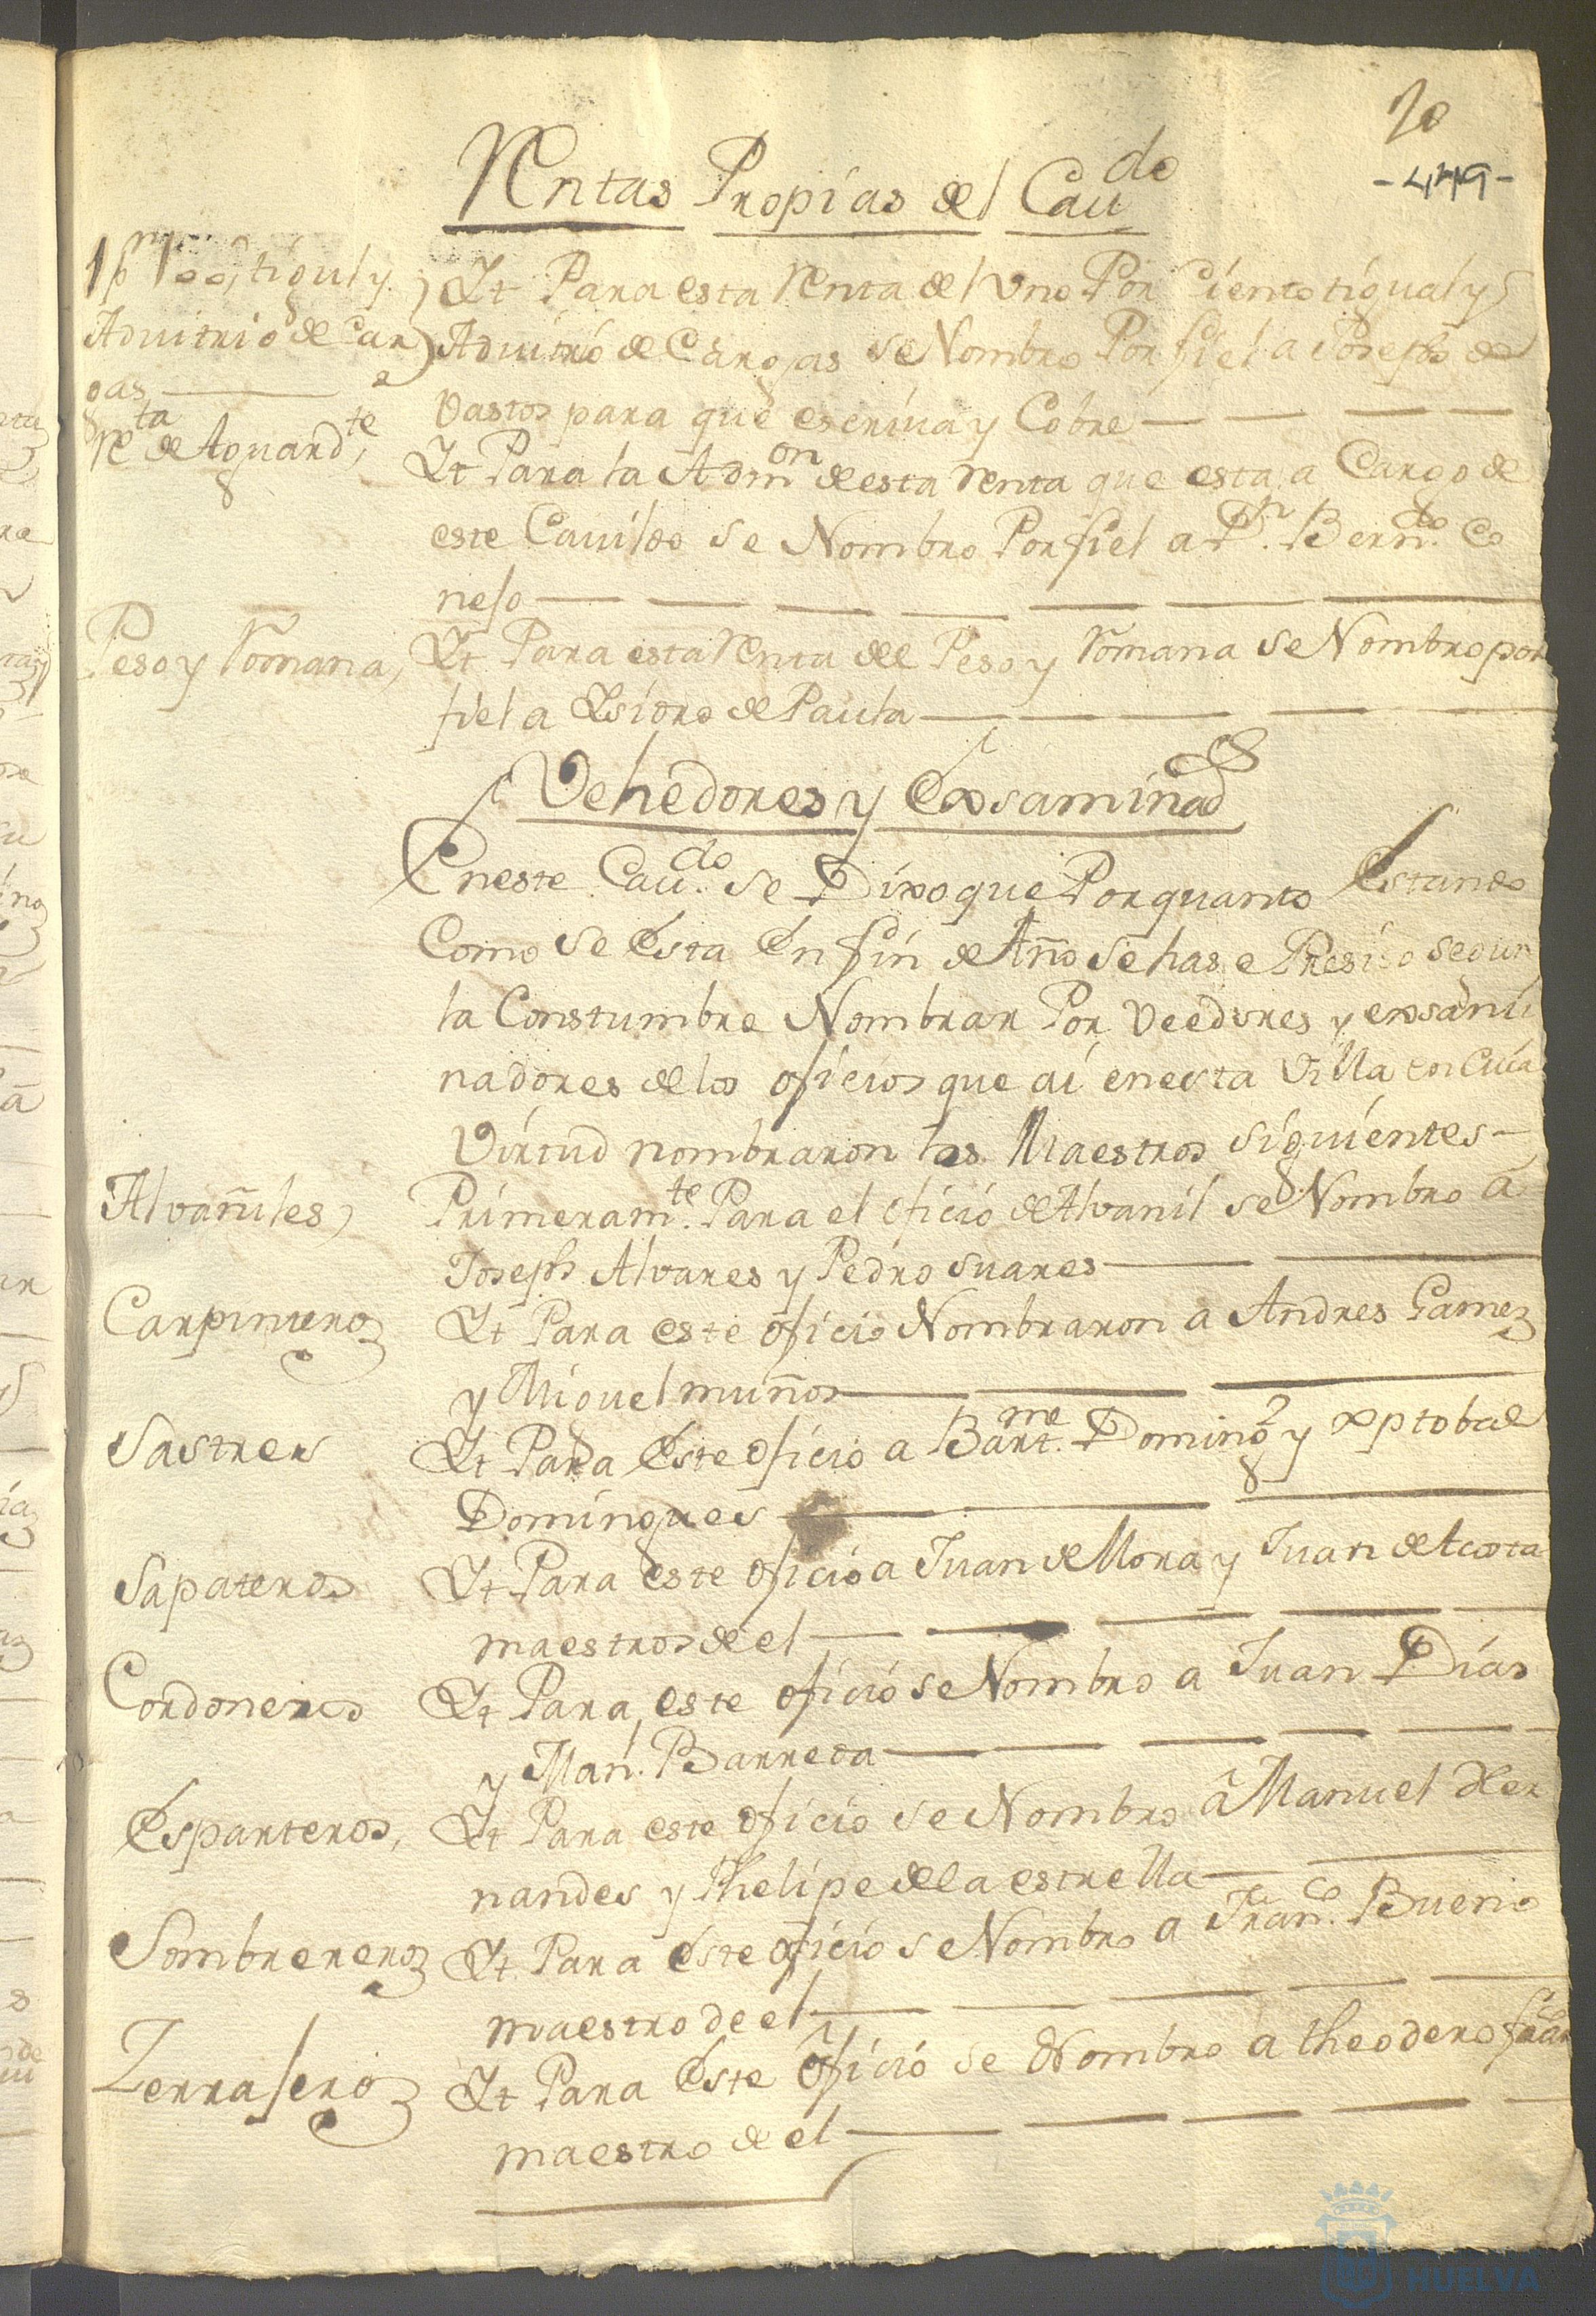 20
-449-
Rentas Propias del Cau.do
1 pr 100, tigul y
Aduitrio de Car
gas
Yt Para esta Renta del Uno Por Ciento tigual y
Aduitrio de Cargas se Nombro Por fiel a Joseph de
Vastos para que escriva y Cobre
Rta de Aguardte,
Yt Para la Admon de esta Renta que esta a Cargo de
este Cauildo se Nombro Por fiel a Dn. Berndo. Co
neso
Peso y Romana,
Yt Para esta Renta del Peso y Romana se Nombro por
fiel a Ysidro de Paula
Vehedores y Exsaminads
En este Caudo. se Dixo que Por quanto Estando
Como se Esta En fin de Año se hase Presiso segun
la Constumbre Nombrar Por Veedores y exsami
nadores de los oficios que ai en esta Villa en Cuia
Virtud nombraron los Maestros siguientes
Alvañiles
Primeramte. Para el oficio de Alvanil se Nombro a
Joseph Alvares y Pedro suares
Carpinteros
Yt Para este oficio Nombraron a Andres Gamez
y Miguel muños
Sastres
Yt Para Este oficio a Bartme. Doming2 y Xptobal
Domingues
Sapateros
Yt Para este oficio a Juan de Mora y Juan de Acosta
maestros de el
Cordoneros
Yt Para este oficio se Nombro a Juan Dias
y Manl. Barreda
Esparteros,
Yt Para este oficio se Nombro a Manuel Her
nandes y Phelipe de la estrella
Sombrereros
Yt Para este oficio se Nombro a Franco. Bueno
maestro de el
Zerrajeros
Yt Para Este oficio se Nombro a theodero
maestro de el
HUELVA